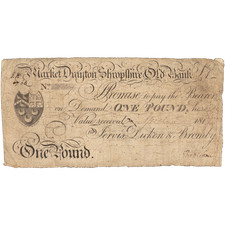 Market Drayton Shropshire Old Bank
No.
I Promise to pay the Bearer
on Demand ONE POUND, here
Value received 181
For Jervis, Dicken & Bromly
One Pound.